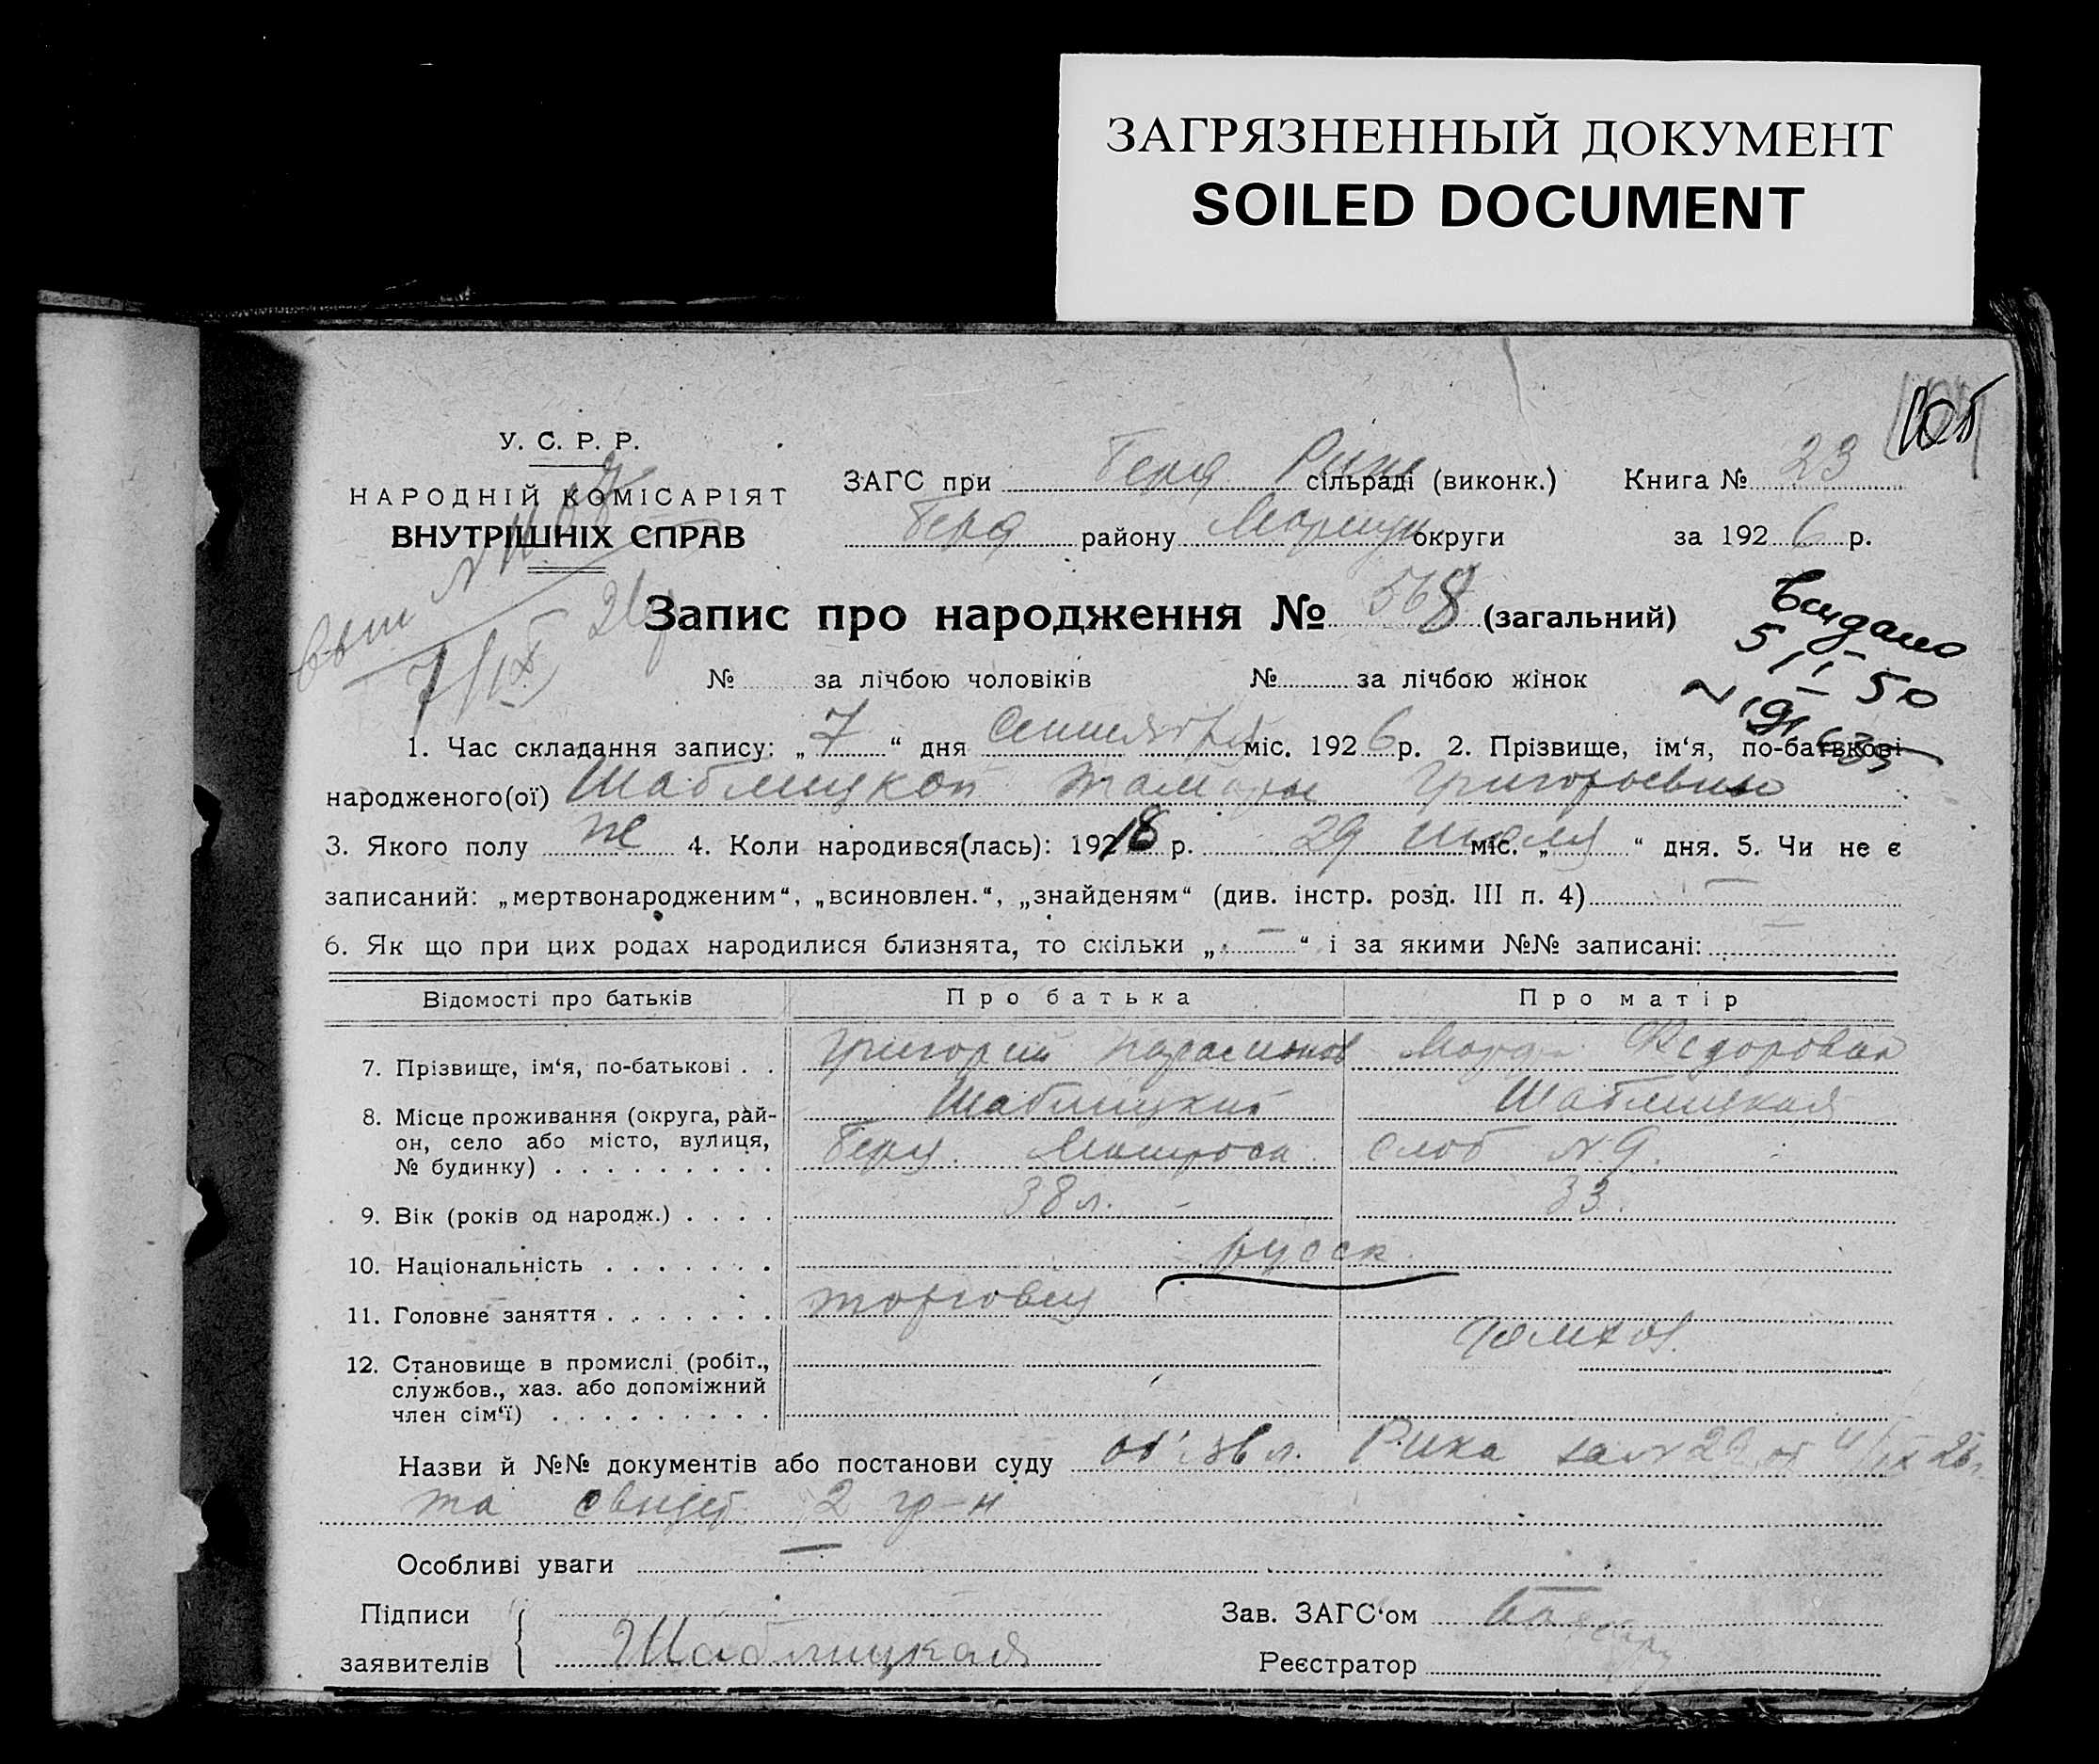 ЗАГРЯЗНЕННЫЙ ДОКУМЕНТ
SOILED DOCUMENT
У. С. Р. Р.
НАРОДНІЙ КОМІСАРІЯТ
ВНУТРІШНІХ СПРАВ
ЗАГС при Берд Рике сільраді (виконк.) Книга № 23
Берд району Мариуп округи за 1926 р.
Запис про народження № 568 (загальний)
Выдано
5/II-50
№ за лічбою чоловіків № за лічбою жінок
1. Час складання запису: „7“ дня Сентября міс. 1926 р. 2. Прізвище, ім‘я, по-батькові
народженого(ої) Шаблицкой Тамары Григорьевны
3. Якого полу ж 4. Коли народився(лась): 1918 р. 29 июля міс. „ “ дня. 5. Чи не є
записаний: „мертвонародженим“, „всиновлен.“, „знайденям“ (див. інстр. розд. III п. 4) —
6. Як що при цих родах народилися близнята, то скільки „—“ і за якими №№ записані: —
Відомості про батьків Про батька Про матір
7. Прізвище, ім‘я, по-батькові . . Григорий Марфа Федоровна
Шаблицкий Шаблицкая
8. Місце проживання (округа, рай-
он, село або місто, вулиця,
№ будинку) . . . . . . . . . Берд. Матросск слоб № 9.
9. Вік (років од народж.) . . . . 38 л. - 33.
10. Національність . . . . . . . русск.
11. Головне заняття . . . . . . . торговец
домхоз.
12. Становище в промислі (робіт.,
службов., хаз. або допоміжний
член сім‘ї) . . . . . . . . .
Назви й №№ документів або постанови суду Рика за № 29 от 4/IX 26
та свидет. 2 гр-н
Особливі уваги —
Підписи
заявителів Шаблицкая
Зав. ЗАГС‘ом
Реєстратор